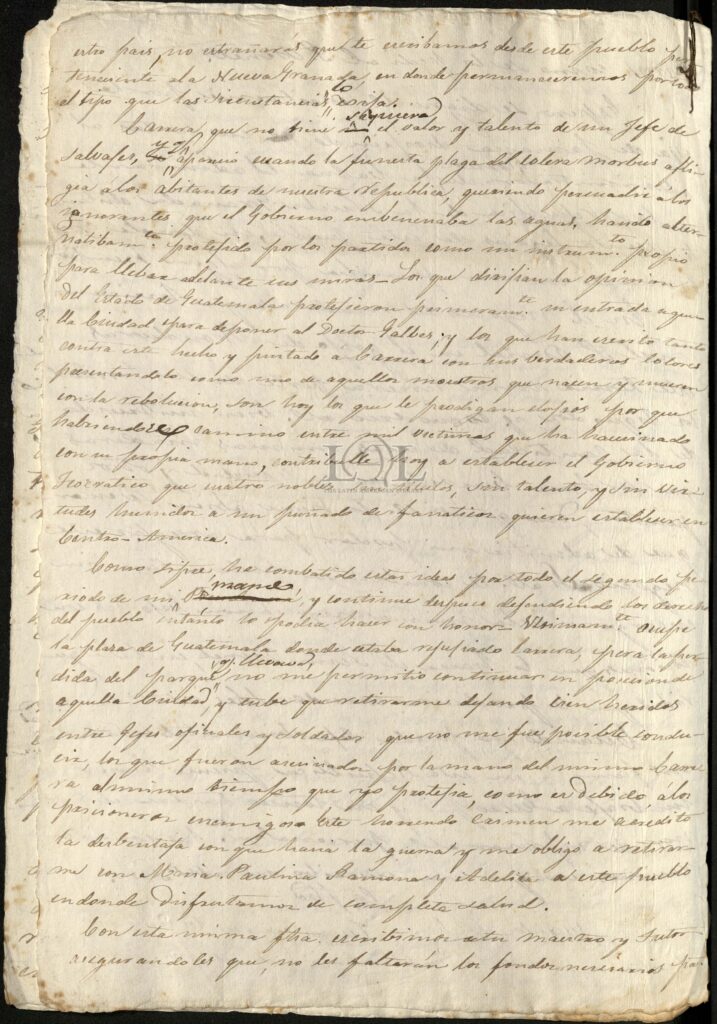 estro pais, no estrañarás que te escribamos desde este pueblo per
teneciente ala Nueva Granada, en donde permaneceremos por to
el tipo que las sircustancias lo exija.
Carrera, que no tiene siquiera el valor y talento de un Jefe de
salvajes, y q. aparecio cuando la funesta plaga del colera morbus afli-
gia álos abitantes de nuestra republica, queriendo persuadir á los
ignorantes que el Gobierno embenenaba las aguas, hasido alter-
natibamte. protejido por los partidos como un instrumto. propio
para llebar adelante sus miras – Los que dirijian la opinion
del Estado de Guatemala protejieron primeramte. su entrada aque-
lla Ciudad para deponer al Doctor Galbes; y los que han escrito tanto
contra este hecho y pintado a Carrera con sus verdaderos colores
presentandolo como uno de aquellos mostros que nacen y mueren
con la rebolucion, son hoy los que le prodigan elojios por que
habriendose camino entre mil victimas que ha hacinado
con su propia mano, contribulle hoy a establecer el Gobierno
Teocratico que cuatro nobles sin titulos, sin talento, y sin vir-
tudes hunidos a un puñado de fanaticos quieren establecer en
Centro-America.
Como sipre he combatido estas ideas por todo el segundo pe-
riodo de mi mando, y continue despues defendiendo los derechos
del pueblo intánto lo podia hacer con honor – Ultimamte. ocupe
la plaza de Guatemala donde estaba refujiado Carrera, pero la per-
dida del parque q. llevava, no me permitio continuar en posecion de
aquella Ciudad, y tube que retirarme dejando cien heridos
entre Jefes oficiales y soldados que no me fue posible condu-
cir, los que fueron asecinados por la mano del mismo Carre-
ra al mismo tiempo que yo protejia, como es debido álos
pricioneros enemigos. Este horrendo crimen me acredito
la desbentaja con que hacia la guerra y me obligo a retirar-
me con Maria. Paulina Ramona y Adelita a este pueblo
endonde disfrutamos de completa salud.
Con esta misma fha. escribimos atu maestro y Tutor
asegurandoles que, no les faltarán los fondos necesarios pa